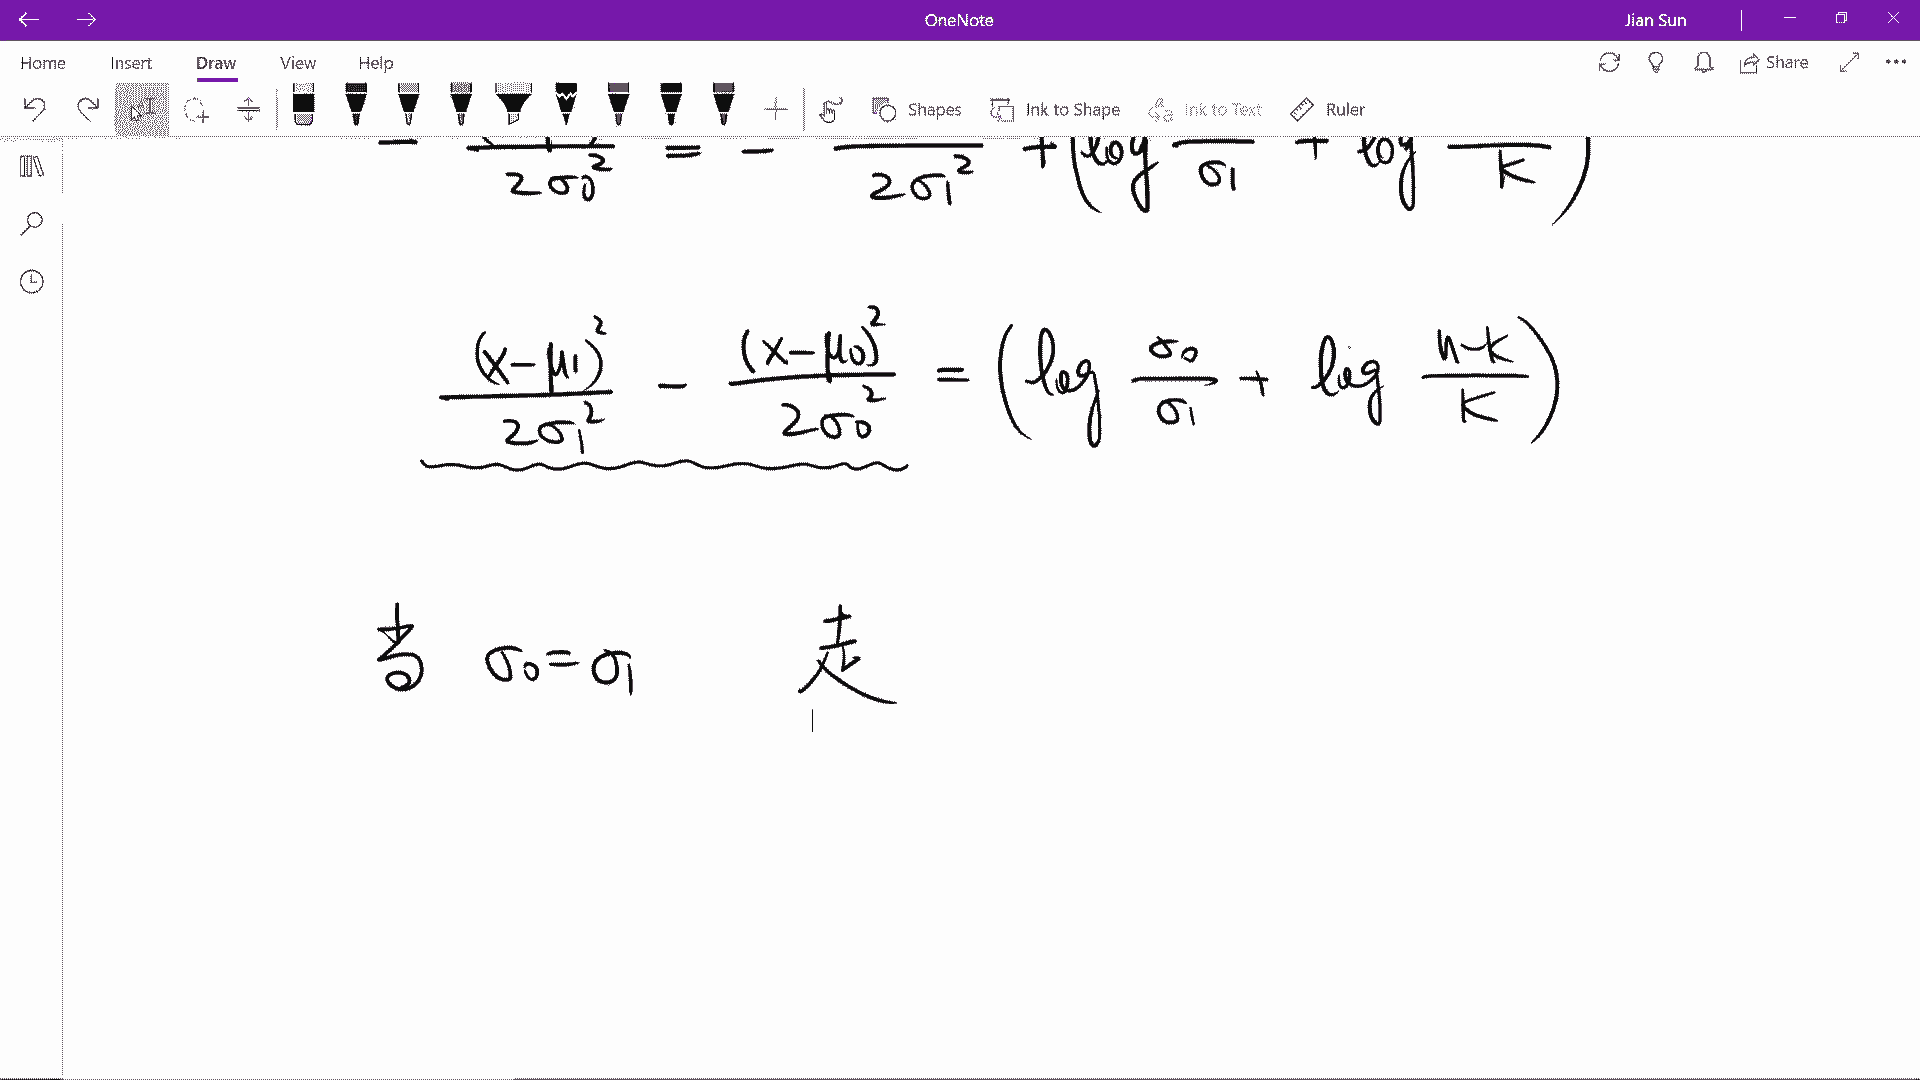 OneNote
Jian Sun
Home Insert Draw View Help
Share
Shapes Ink to Shape Ink to Text Ruler
− 2σ₀² = − 2σ₁² + (log σ₁ + log K)
(x−μ₁)²/2σ₁² − (x−μ₀)²/2σ₀² = (log σ₀/σ₁ + log n−k/K)
当 σ₀=σ₁ 走